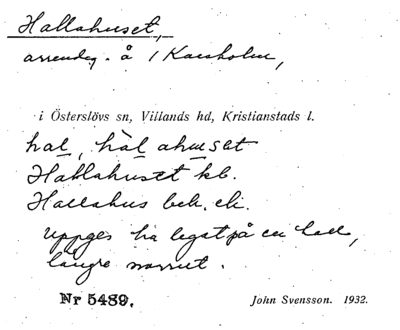 Hallahuset,
arrendeg. å 1 Karsholm,
i Österslövs sn, Villands hd, Kristianstads l.
hal, hàl ahuset
Hallahuset kb.
Hallahus beb. el.
Uppges ha legat på en hall,
längre norrut.
Nr 5489. John Svensson. 1932.